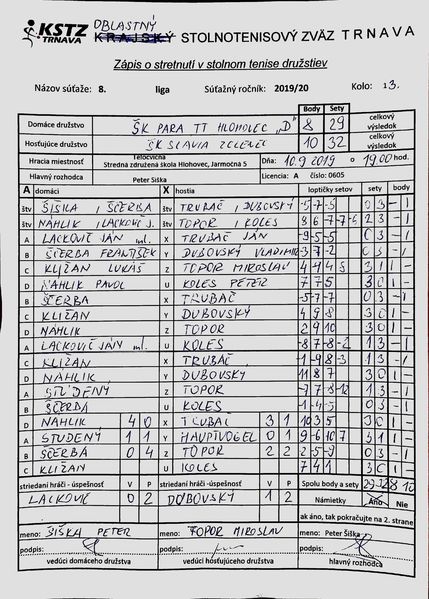 KSTZ
TRNAVA
OBLASTNÝ
KRAJSKÝ STOLNOTENISOVÝ ZVÄZ TRNAVA
Zápis o stretnutí v stolnom tenise družstiev
Názov súťaže: 8. liga Súťažný ročník: 2019/20 Kolo: 13.
Body Sety
Domáce družstvo ŠK PARA TT HLOHOVEC „D" 8 29 celkový výsledok
Hosťujúce družstvo ŠK SLAVIA ZELENEC 10 32 celkový výsledok
Hracia miestnosť Telocvičňa Stredná združená škola Hlohovec, Jarmočná 5 Dňa: 10.9 2019 o 19.00 hod.
Hlavný rozhodca Peter Šiška Licencia: A číslo: 0605
A domáci X hostia loptičky setov sety body
štv ŠIŠKA, ŠČERBA štv TRUBAČ, DUBOVSKÝ -5 -7 -5 0 3 - 1
štv NÁHLIK, LACKOVIČ J. štv TOPOR, KOLES 2 3 - 1
A LACKOVIČ JÁN ml. X TRUBAČ JÁN -9 -5 -5 0 3 - 1
B ŠČERBA FRANTIŠEK Y DUBOVSKÝ VLADIMÍR -3 -7 -2 0 3 - 1
C KLIŽAN LUKÁŠ Z TOPOR MIROSLAV 3 1 1 -
D NÁHLIK PAVOL U KOLES PETER 7 7 5 3 0 1 -
B ŠČERBA X TRUBAČ -5 -7 -7 0 3 - 1
C KLIŽAN Y DUBOVSKÝ 4 9 8 3 0 1 -
D NÁHLIK Z TOPOR 2 9 10 3 0 1 -
A LACKOVIČ JÁN ml. U KOLES -8 7 -8 -2 1 3 - 1
C KLIŽAN X TRUBAČ 1 -9 8 -3 1 3 - 1
D NÁHLIK Y DUBOVSKÝ 11 8 7 3 0 1 -
A ŠTUDENÝ Z TOPOR 1 3 - 1
B ŠČERBA U KOLES -1 -4 -5 0 3 - 1
D NÁHLIK 4 0 X TRUBAČ 3 1 10 3 5 3 0 1 -
A ŠTUDENÝ 1 1 Y HAUPTVOGEL 0 1 9 -6 10 7 3 1 1 -
B ŠČERBA 0 4 Z TOPOR 2 2 -2 -5 -9 0 3 - 1
C KLIŽAN U KOLES 7 4 1 3 0 1 -
striedaní hráči - úspešnosť V P striedaní hráči - úspešnosť V P Spolu body a sety 29 32 8 10
LACKOVIČ 0 2 DUBOVSKÝ 1 2 Námietky Áno Nie
ak áno, tak pokračujte na 2. strane
meno: ŠIŠKA PETER meno: TOPOR MIROSLAV meno: Peter Šiška
podpis: podpis: podpis:
vedúci domáceho družstva vedúci hosťujúceho družstva hlavný rozhodca